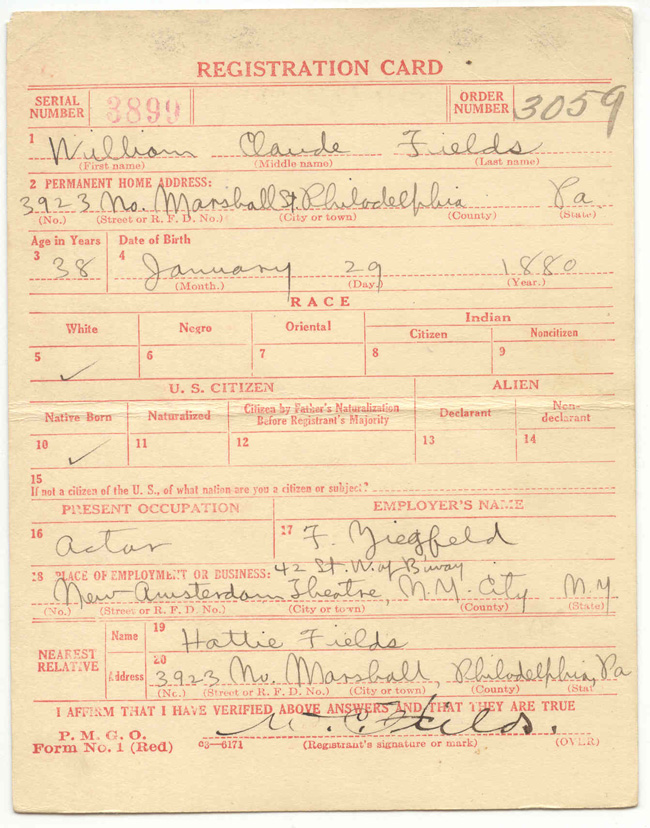 REGISTRATION CARD
SERIAL NUMBER 3899 ORDER NUMBER 3059
1 William Claude Fields
(First name) (Middle name) (Last name)
2 PERMANENT HOME ADDRESS:
3923 No. Marshall St. Philadelphia Pa
(No.) (Street or R. F. D. No.) (City or town) (County) (State)
Age in Years Date of Birth
3 38 4 January 29 1880
(Month.) (Day.) (Year.)
RACE
White Negro Oriental Indian
Citizen Noncitizen
5 ✓ 6 7 8 9
U. S. CITIZEN ALIEN
Native Born Naturalized Citizen by Father's Naturalization Before Registrant's Majority Declarant Non-declarant
10 ✓ 11 12 13 14
15
If not a citizen of the U. S., of what nation are you a citizen or subject?
PRESENT OCCUPATION EMPLOYER'S NAME
16 Actor 17 F. Ziegfeld
18 PLACE OF EMPLOYMENT OR BUSINESS: 42 St. W. of B'way
New Amsterdam Theatre, N.Y. City N.Y.
(No.) (Street or R. F. D. No.) (City or town) (County) (State)
NEAREST RELATIVE Name 19 Hattie Fields
Address 20 3923 No. Marshall, Philadelphia, Pa
(No.) (Street or R. F. D. No.) (City or town) (County) (Stat
I AFFIRM THAT I HAVE VERIFIED ABOVE ANSWERS AND THAT THEY ARE TRUE
P. M. G. O.
Form No. 1 (Red) 03—6171 W. C. Fields.
(Registrant's signature or mark) (OVER)